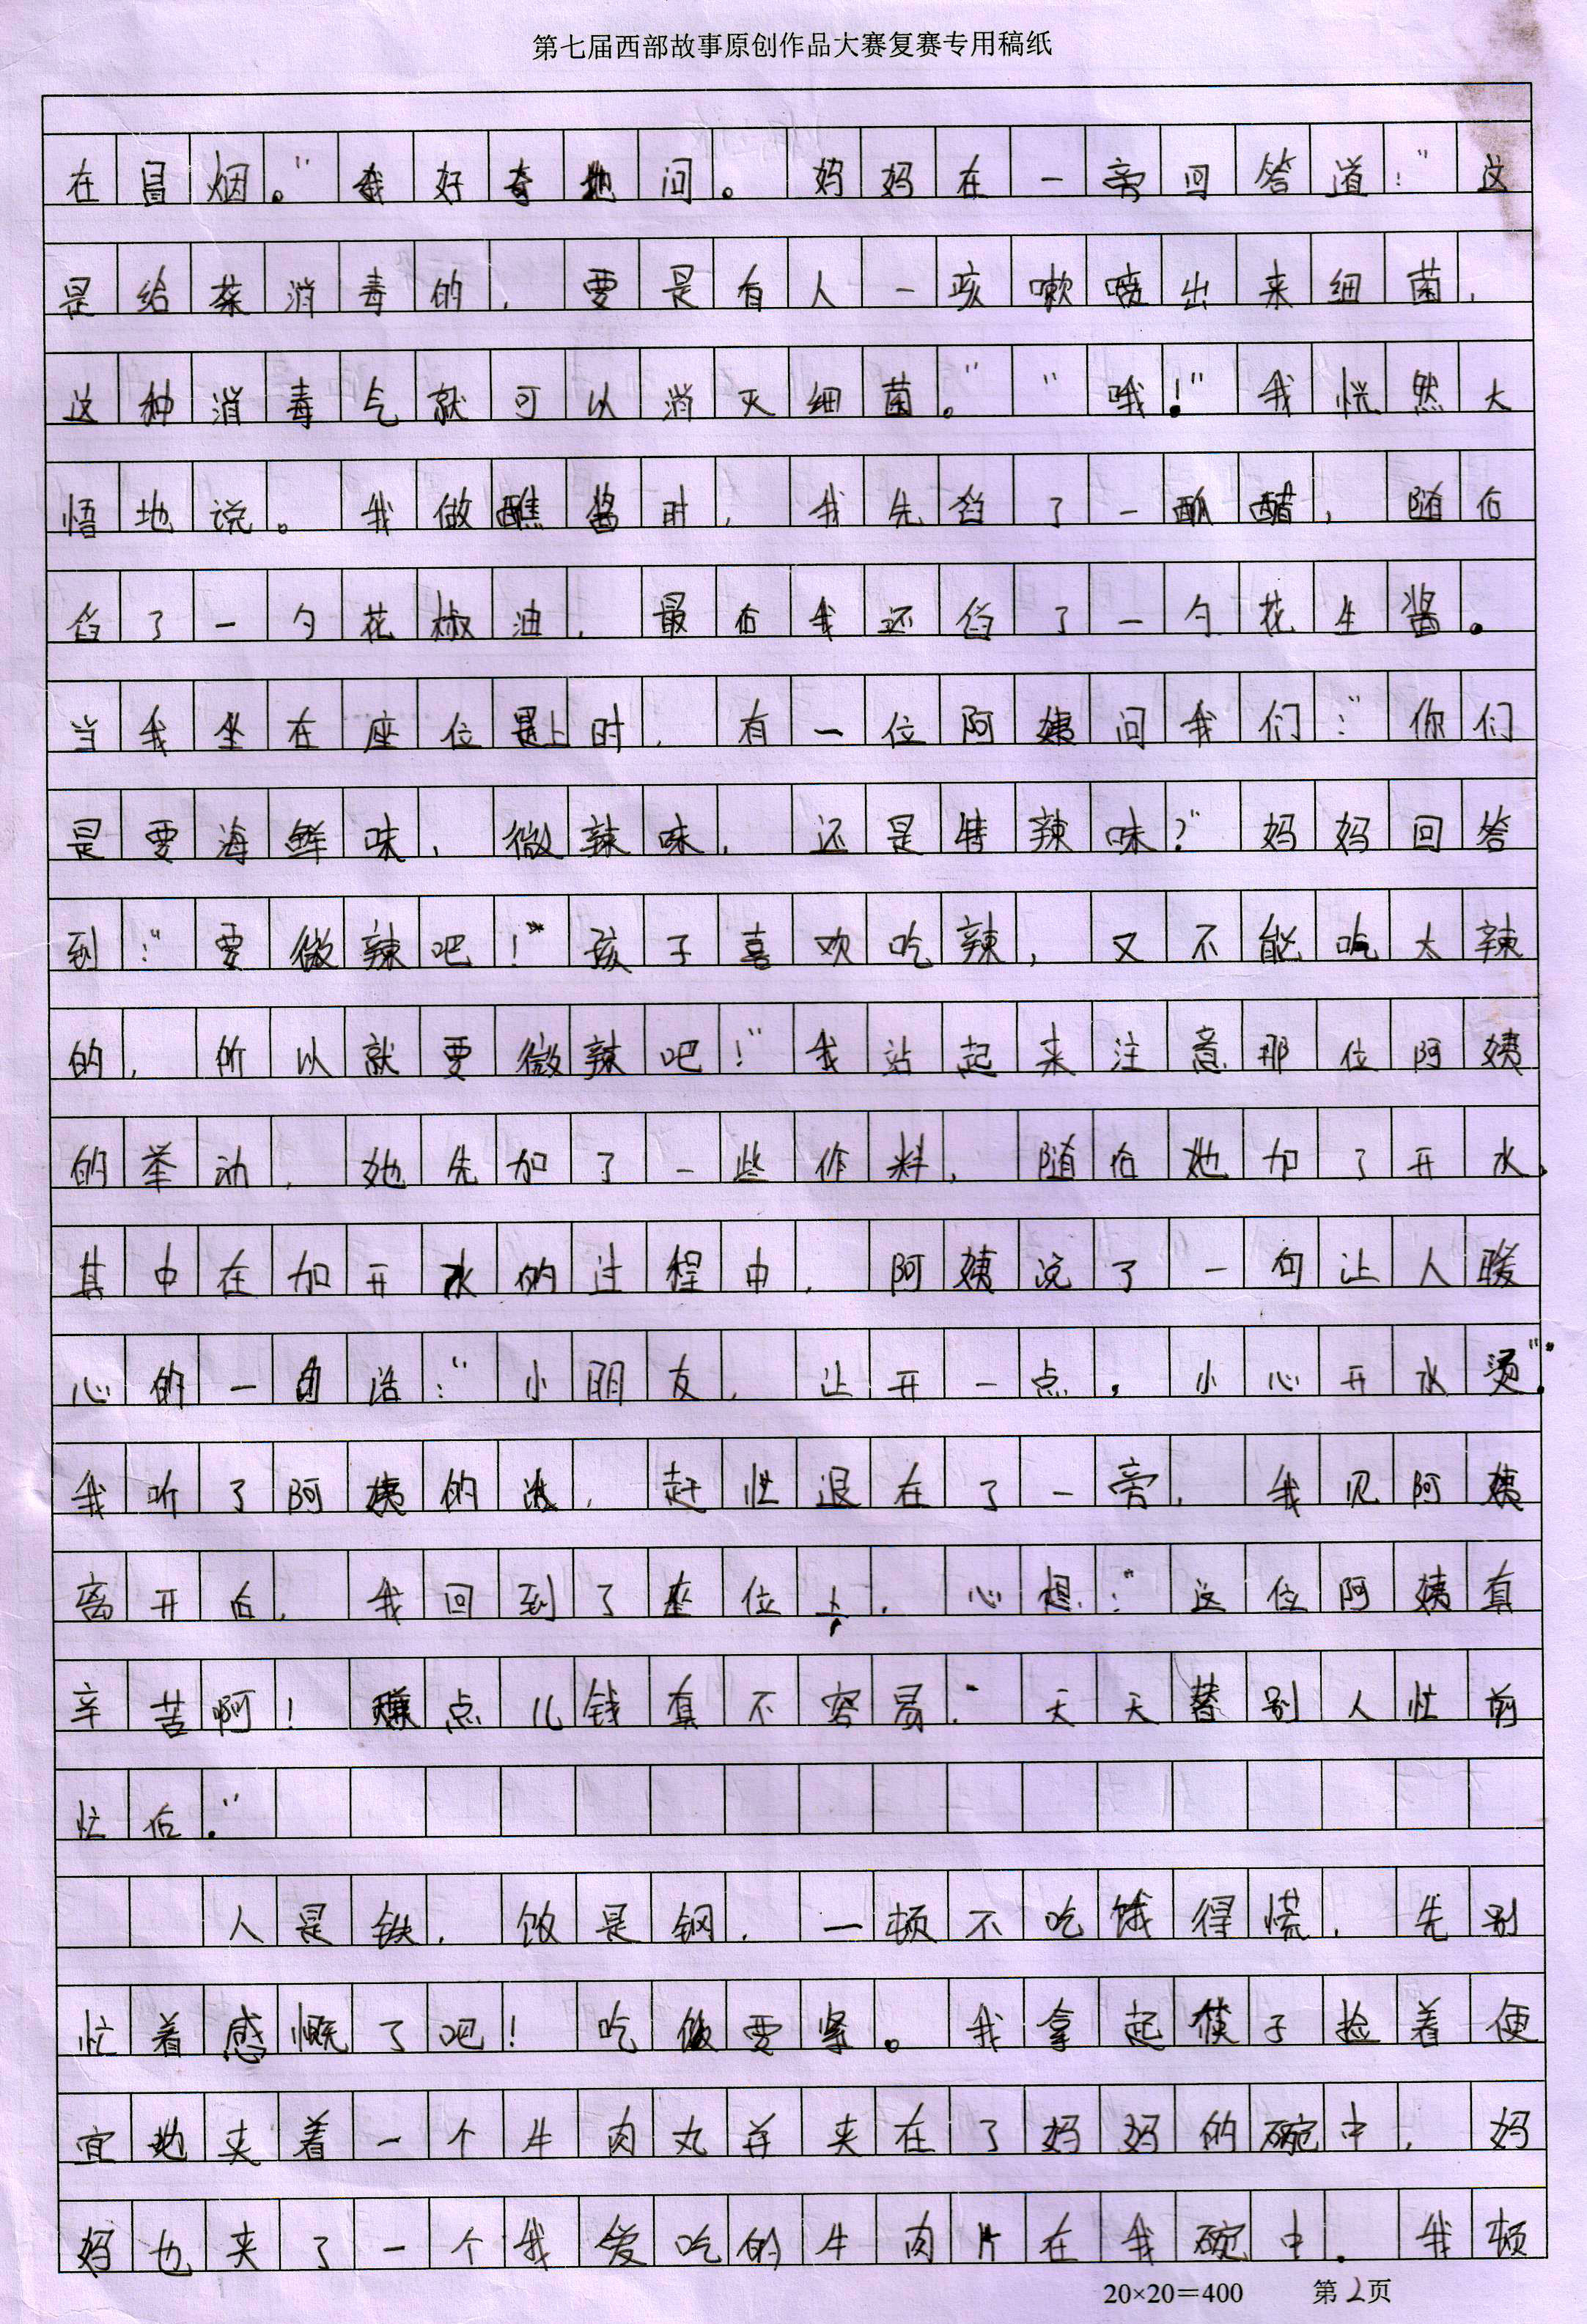 第七届西部故事原创作品大赛复赛专用稿纸
在冒烟。”我好奇地问。妈妈在一旁回答道：“这
是给菜消毒的，要是有人一咳嗽喷出来细菌，
这种消毒气就可以消灭细菌。”“哦！”我恍然大
悟地说。我做蘸酱时，我先舀了一醋，随后
舀了一勺花椒油，最后我还舀了一勺花生酱。
当我坐在座位上时，有一位阿姨问我们：“你们
是要海鲜味，微辣味，还是特辣味？”妈妈回答
到：“要微辣吧！”孩子喜欢吃辣，又不能吃太辣
的，所以就要微辣吧！”我站起来注意那位阿姨
的举动，她先加了一些作料，随后她加了开水，
其中在加开水的过程中，阿姨说了一句让人暖
心的一句话：“小朋友，让开一点，小心开水烫”。
我听了阿姨的话，赶忙退在了一旁，我见阿姨
离开后，我回到了座位上，心想：“这位阿姨真
辛苦啊！赚点儿钱真不容易．天天替别人忙前
忙后。”
人是铁，饭是钢，一顿不吃饿得慌，先别
忙着感慨了吧！吃饭要紧。我拿起筷子捡着便
宜地夹着一个牛肉丸并夹在了妈妈的碗中，妈
妈也夹了一个我爱吃的牛肉片在我碗中．我顿
20×20＝400 第2页